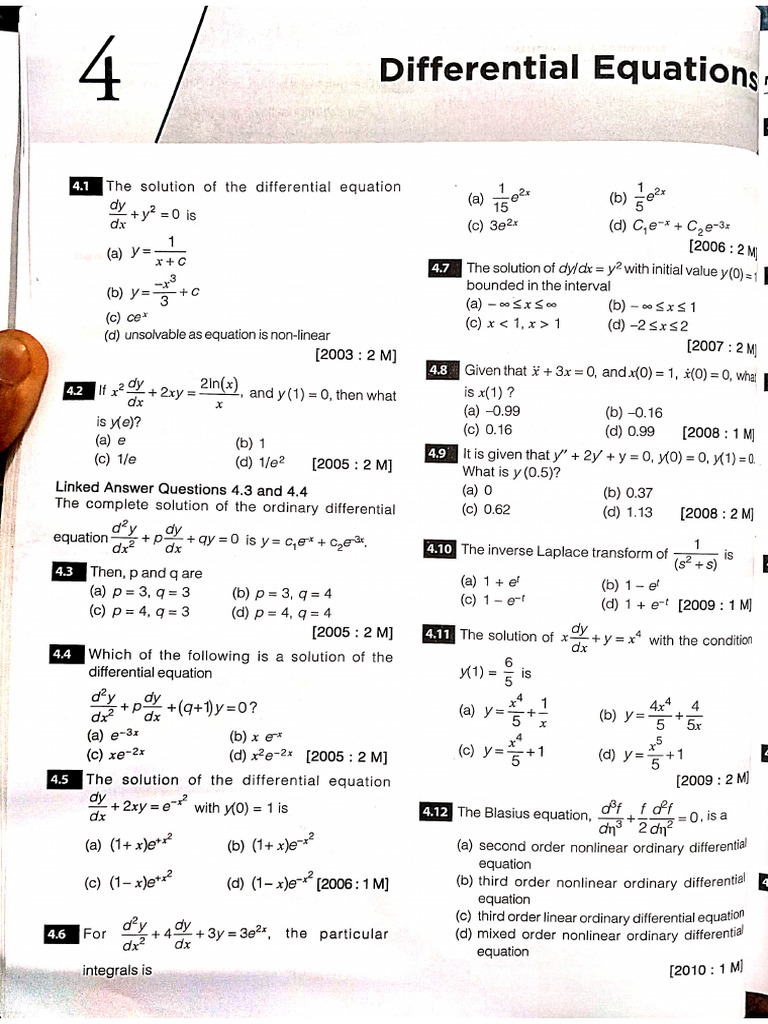 4
Differential Equations
4.1 The solution of the differential equation
dy/dx + y² = 0 is
(a) y = 1/(x + c)
(b) y = -x³/3 + c
(c) ceˣ
(d) unsolvable as equation is non-linear
[2003 : 2 M]
4.2 If x² dy/dx + 2xy = 2ln(x)/x, and y(1) = 0, then what
is y(e)?
(a) e (b) 1
(c) 1/e (d) 1/e² [2005 : 2 M]
Linked Answer Questions 4.3 and 4.4
The complete solution of the ordinary differential
equation d²y/dx² + p dy/dx + qy = 0 is y = c₁e⁻ˣ + c₂e⁻³ˣ.
4.3 Then, p and q are
(a) p = 3, q = 3 (b) p = 3, q = 4
(c) p = 4, q = 3 (d) p = 4, q = 4
[2005 : 2 M]
4.4 Which of the following is a solution of the
differential equation
d²y/dx² + p dy/dx + (q+1)y = 0?
(a) e⁻³ˣ (b) x e⁻ˣ
(c) xe⁻²ˣ (d) x²e⁻²ˣ [2005 : 2 M]
4.5 The solution of the differential equation
dy/dx + 2xy = e^(-x²) with y(0) = 1 is
(a) (1+ x)e^(+x²) (b) (1+ x)e^(-x²)
(c) (1– x)e^(+x²) (d) (1– x)e^(-x²) [2006 : 1 M]
4.6 For d²y/dx² + 4 dy/dx + 3y = 3e²ˣ, the particular
integrals is
(a) 1/15 e²ˣ (b) 1/5 e²ˣ
(c) 3e²ˣ (d) C₁e⁻ˣ + C₂e⁻³ˣ
[2006 : 2 M]
4.7 The solution of dy/dx = y² with initial value y(0) = 1
bounded in the interval
(a) – ∞ ≤ x ≤ ∞ (b) – ∞ ≤ x ≤ 1
(c) x < 1, x > 1 (d) –2 ≤ x ≤ 2
[2007 : 2 M]
4.8 Given that ẍ + 3x = 0, and x(0) = 1, ẋ(0) = 0, what
is x(1) ?
(a) –0.99 (b) –0.16
(c) 0.16 (d) 0.99 [2008 : 1 M]
4.9 It is given that y″ + 2y′ + y = 0, y(0) = 0, y(1) = 0.
What is y (0.5)?
(a) 0 (b) 0.37
(c) 0.62 (d) 1.13 [2008 : 2 M]
4.10 The inverse Laplace transform of 1/(s² + s) is
(a) 1 + eᵗ (b) 1 – eᵗ
(c) 1 – e⁻ᵗ (d) 1 + e⁻ᵗ [2009 : 1 M]
4.11 The solution of x dy/dx + y = x⁴ with the condition
y(1) = 6/5 is
(a) y = x⁴/5 + 1/x (b) y = 4x⁴/5 + 4/5x
(c) y = x⁴/5 + 1 (d) y = x⁵/5 + 1
[2009 : 2 M]
4.12 The Blasius equation, d³f/dη³ + f/2 d²f/dη² = 0, is a
(a) second order nonlinear ordinary differential
equation
(b) third order nonlinear ordinary differential
equation
(c) third order linear ordinary differential equation
(d) mixed order nonlinear ordinary differential
equation
[2010 : 1 M]